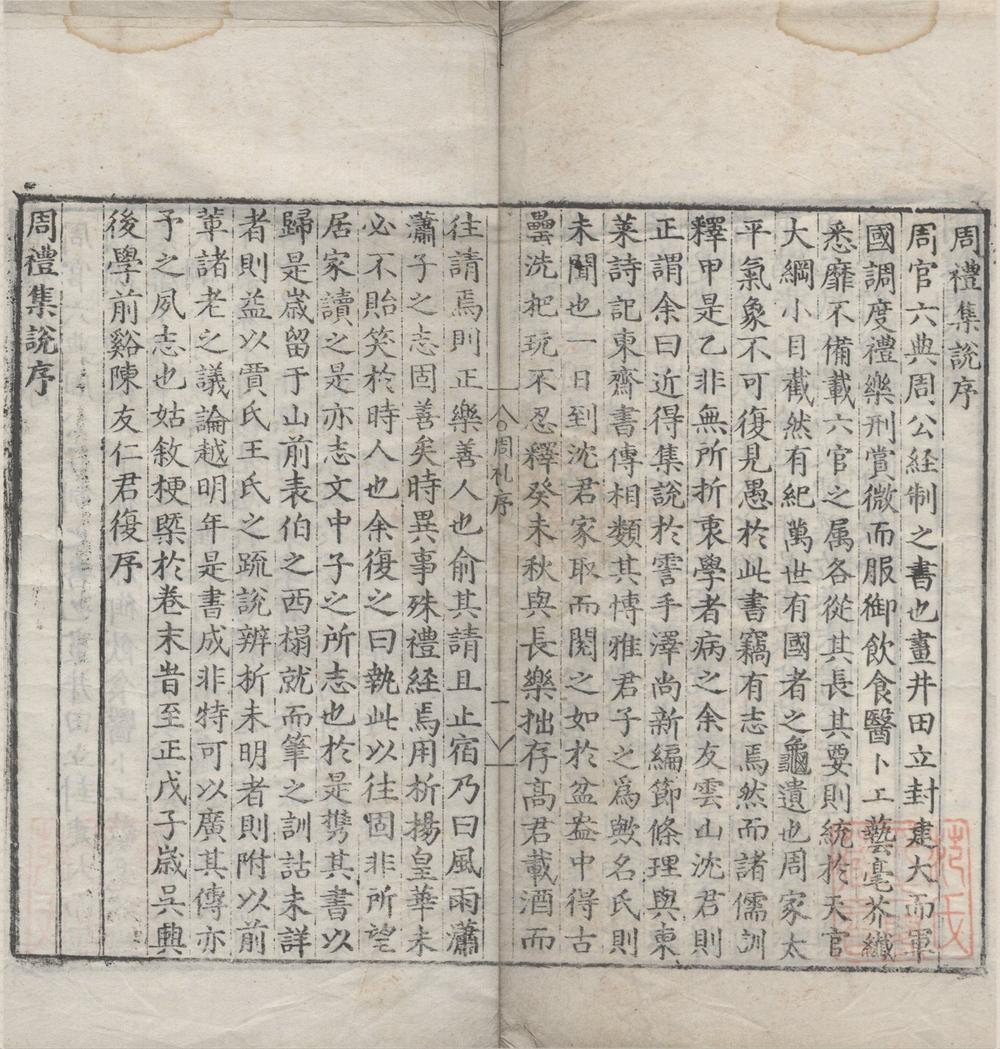 周禮集説序
周官六典周公経制之書也畫井田立封建大而軍
國調度禮樂刑賞微而服御飲食醫卜工藝毫芥纎
悉靡不備載六官之属各從其長其要則統於天官
大綱小目截然有紀萬世有國者之龜遺也周家太
平氣象不可復見愚於此書竊有志焉然而諸儒訓
釋甲是乙非無所折衷學者病之余友雲山沈君則
正謂余曰近得集説於霅手澤尚新編節條理與東
萊詩記東齋書傳相類其愽雅君子之爲歟名氏則
未聞也一日到沈君家取而閱之如於盆盎中得古
罍洗杷玩不忍釋癸未秋與長樂拙存髙君載酒而
周礼序
一
往請焉則正樂善人也俞其請且止宿乃曰風雨瀟
瀟子之志固善矣時異事殊禮経焉用析揚皇華未
必不貽笑於時人也余復之曰執此以往固非所望
居家讀之是亦志文中子之所志也於是携其書以
歸是歳留于山前表伯之西榻就而筆之訓詁未詳
者則益以賈氏王氏之疏說辨析未明者則附以前
軰諸老之議論越明年是書成非特可以廣其傳亦
予之夙志也姑敘梗槩於卷末旹至正戊子歲吳興
後學前谿陳友仁君復序
周禮集説序